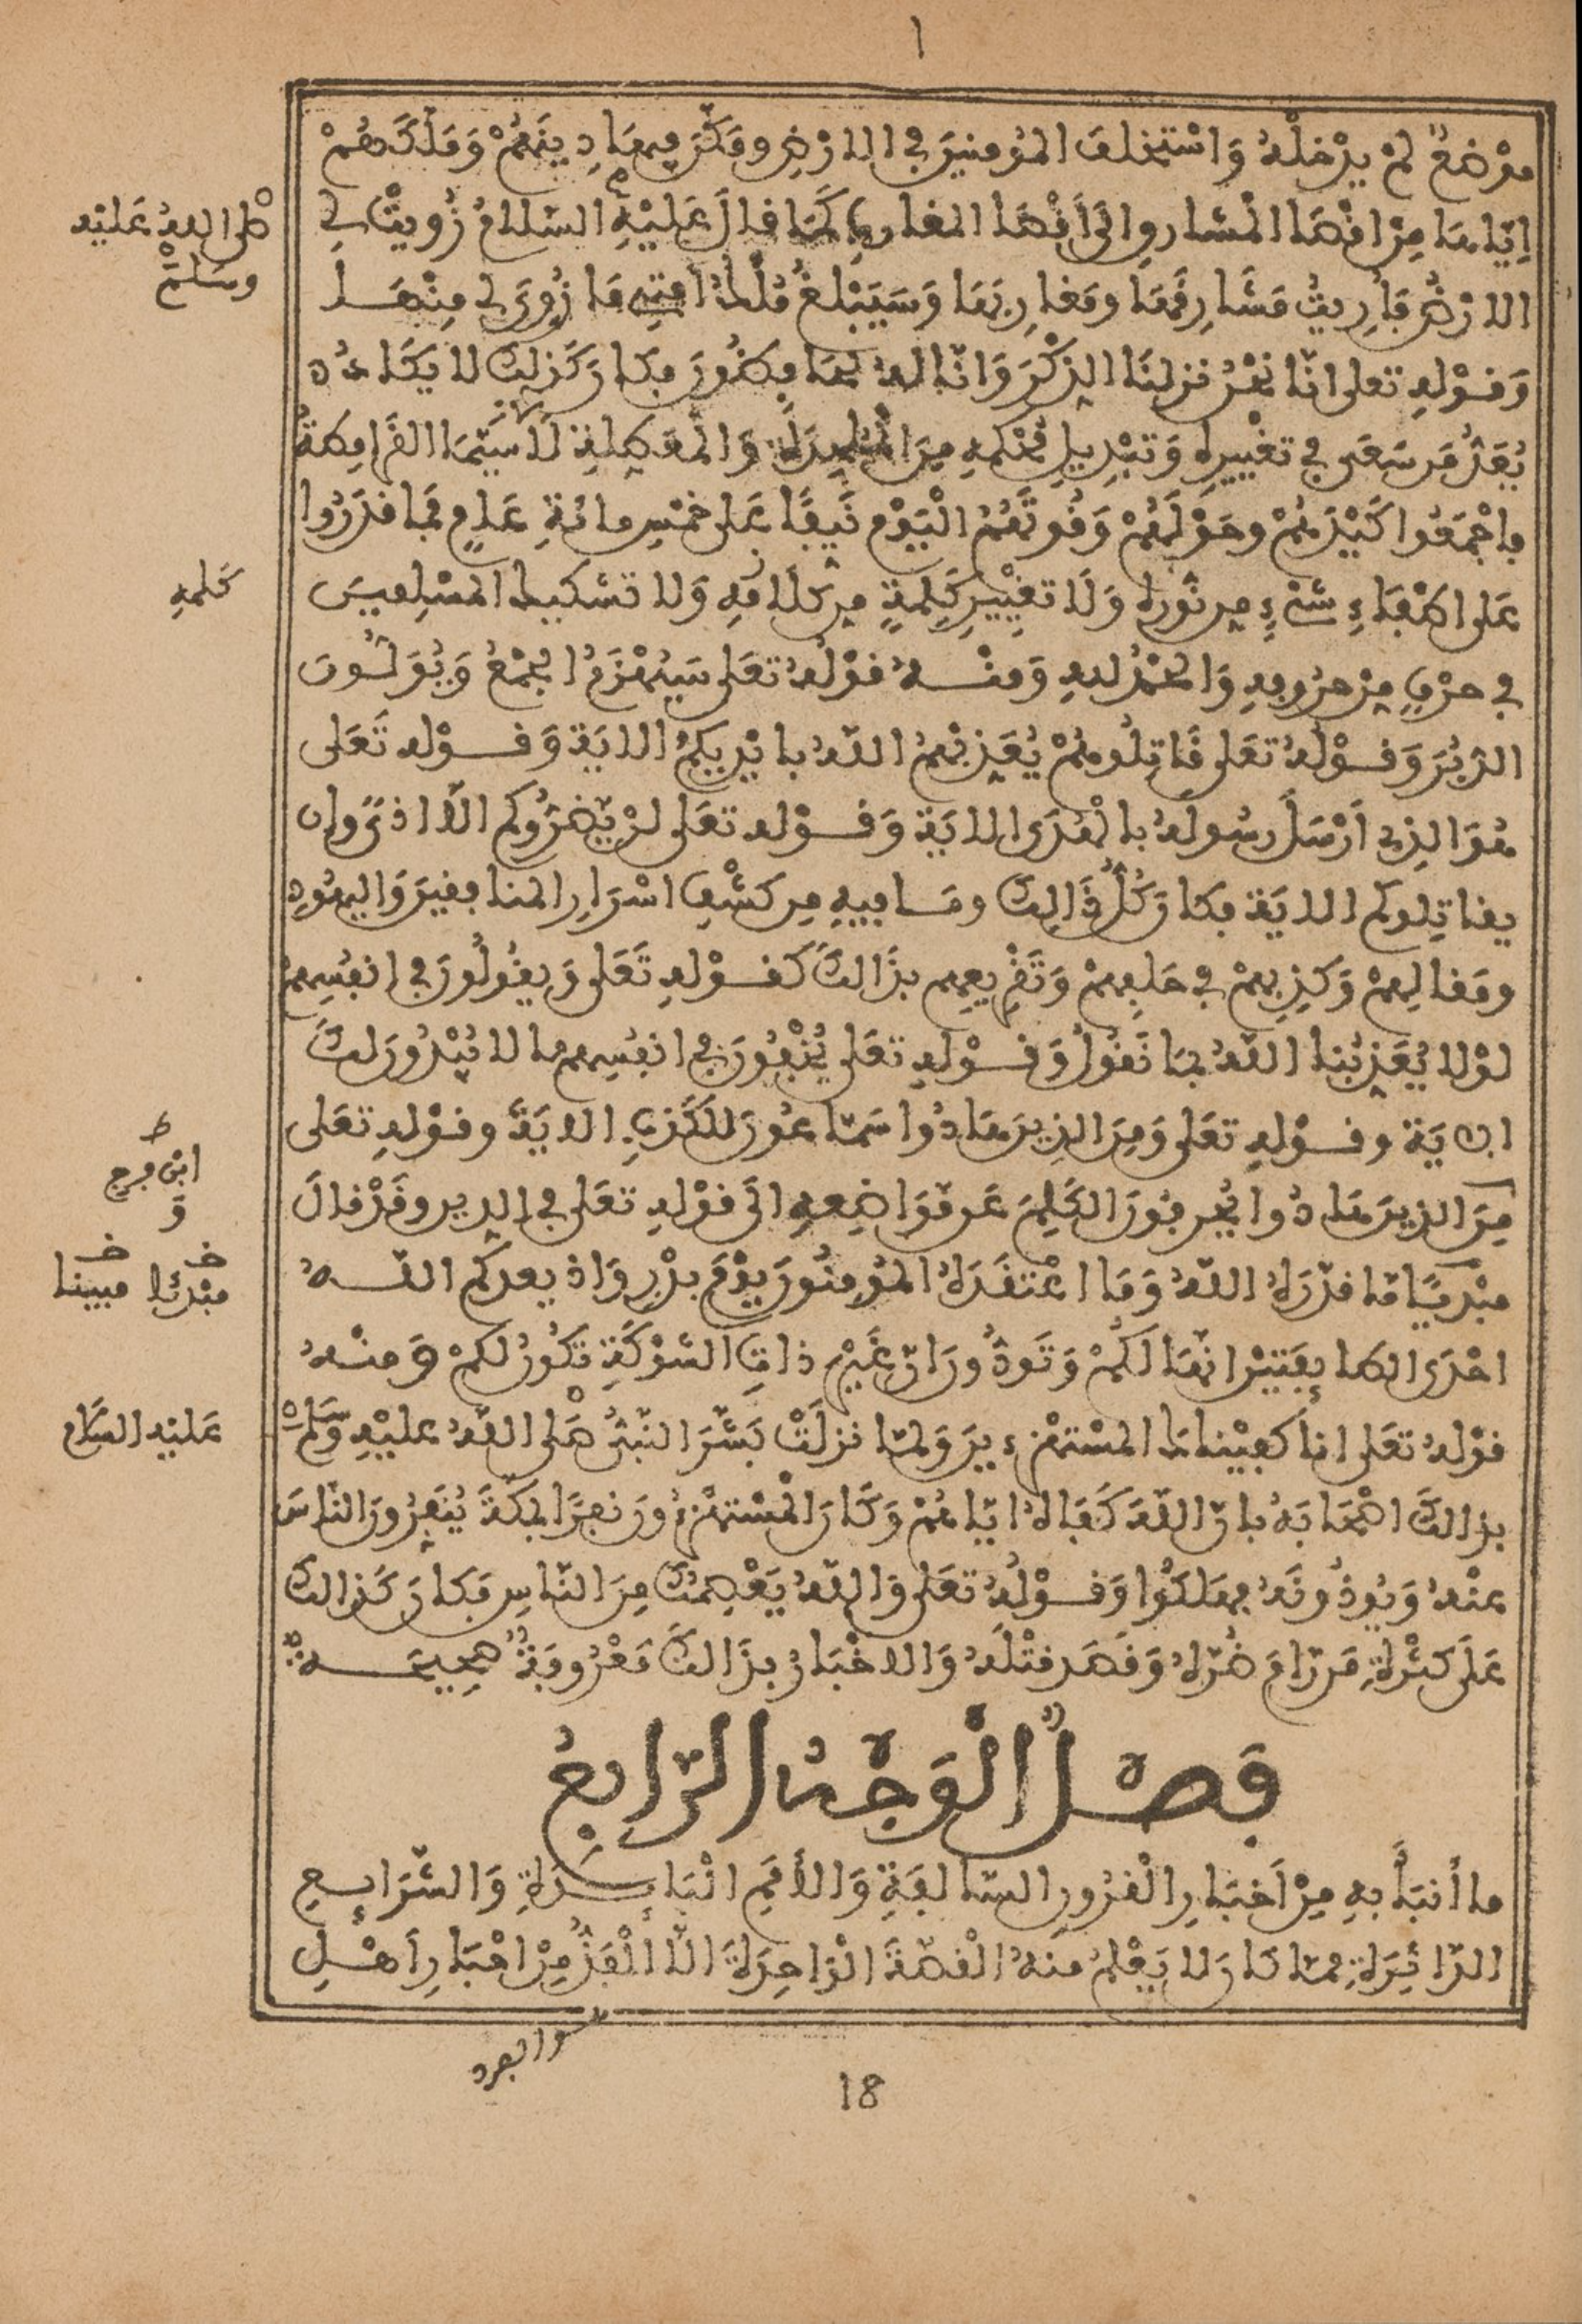 ا
موْضعٌ لمْ يدْخلْهُ وَاسْتخلفَ المؤمنينَ في الارْضِ ومَكّنَ فيها دِينَهُمْ وَمَلّكَهُمْ
إيّاها مِنْ اقْصَا الْمشارِقِ إلَى أَقْصَا المغاربِ كَمَا قالَ عَلَيْهِ السّلامُ زُوِيَتْ لي
الارْضُ فَأُرِيتُ مَشَارِقَهَا ومَغارِبَهَا وَسَيَبْلغُ مُلْكُ امّتي مَا زُوِيَ لي مِنْهَا
وَقَوْلهِ تعلى انّا نحْنُ نزلنَا الذِكْرَ وَانّا لهُ لحَافِظُونَ فكانَ كَذلِكَ لا يكَادُ
يُعَدُّ مَن سَعَى في تغْييرِهِ وَتبْدِيلِ مُحْكمهِ مِنَ الْمُلْحِدَةِ وَالْمُعَطِلةِ لَاسِيّمَا القَرَامِطةُ
فاجْمَعُوا كَيْدَهُمْ وحَوْلَهُمْ وَقُوتَهُمُ الْيَوْمَ نَيِفًا عَلى خمْسِ مائةِ عَامٍ فمَا قدَرُوا
عَلى اطْفَاءِ شَيْءٍ مِن نُورِهِ وَلَا تغْيِيرِ كَلِمةٍ مِن كلَامِهِ وَلا تشكيك المُسْلِمينَ
في حرْفٍ مِنْ حرُوفهِ وَالحَمْدُ للهِ وَمنْهُ قوْلُهُ تعَلى سَيُهْزَمُ الجَمْعُ وَيُوَلُّونَ
الدّبُرَ وَقَوْلُهُ تعَلى قَاتِلُوهُمْ يُعَذِبْهُمُ اللّهُ بايْدِيكمُ الايَة وَقَوْلهِ تَعَلى
هُوَ الذِي أَرْسَلَ رسُولَهُ بالْهُدَى الايَة وَقَوْلهِ تعَلى لنْ يّضُرُّوكم الّا اذىً وإن
يقاتِلوكم الايَة فكانَ كُلُّ ذَالِكَ ومَا فيهِ مِن كشْفِ اسْرَارِ المنافِقينَ وَاليهُودِ
ومَقالِهِمْ وَكَذِبِهِمْ في حَلِفِهِمْ وَتَقْرِيعِهِم بذَالكَ كَقَوْلهِ تَعَلى وَيقُولُونَ في انفُسِهِمْ
لوْلا يُعَذِبُنا اللّهُ بمَا نَقُولُ وَقَوْلهِ تعَلى يُخْفُونَ في انفُسِهِم ما لا يُبْدُونَ لكَ
الايَة وقَوْلهِ تعَلى وَمِنَ الذِينَ هَادُوا سَمّاعُونَ للكَذِبِ الايَةَ وقوْلهِ تعَلى
مِنَ الذِينَ هَادُوا يُحَرِفُونَ الكَلِمَ عَن مّوَاضِعهِ الَى قوْلهِ تعَلى في الدِين وقَدْ قالَ
مبْدِيًا مّا قدّرَهُ اللّهُ وَمَا اعْتقَدَهُ المُؤمِنُونَ يَوْمَ بدْرٍ وَاذ يعدكم اللّهُ
احْدَى الطائفَتيْنِ انّهَا لَكُمْ وَتَوَدُّونَ أنّ غَيْرَ ذاتِ الشوْكَةِ تكُونُ لكمْ وَمنْهُ
قوْلهُ تعَلى انا كفيْناكَ المُسْتهْزِءينَ وَلمّا نزلَتْ بَشّرَ النّبيُّ صَلى اللّهُ عليْهِ وَسَلّمَ
بذالكَ اصْحَابَهُ بانّ اللّهَ كَفَاهُ ايّاهُمْ وَكَانَ الْمُسْتهْزِءُونَ نفَرًا بمَكّةَ يُنَفِرُونَ النّاسَ
عنْهُ وَيُوذُونَهُ فهَلكُوا وَقَوْلُهُ تعَلى وَاللّهُ يَعْصِمُكَ مِنَ النّاسِ فكانَ كَذالكَ
عَلَى كثْرَةِ مَن رّامَ ضُرّهُ وَقَصَدَ قتْلَهُ وَالاخْبَارُ بذَالكَ مَعْرُوفَةٌ صَحِيحَةٌ
فَصْلٌ الْوَجْهُ الرّابِعُ
ما أنبَأَ بهِ مِنْ أَخبَارِ الْقرُونِ السّالفَةِ وَالأمَمِ البَائدَةِ وَالشّرَائعِ
الدّاثِرَةِ ممّا كانَ لا يَعْلَمُ منهُ الْقصّةَ الْوَاحِدَةَ الّا الْفَذُّ مِنْ احْبَارِ أهْلِ
صلى اللهُ عَليْهِ
وسَلمَ
كَلمِهِ
ط
ابْن فرج
وَ
خ خ
مبْدئا مبينا
عَليْهِ السّلام
18